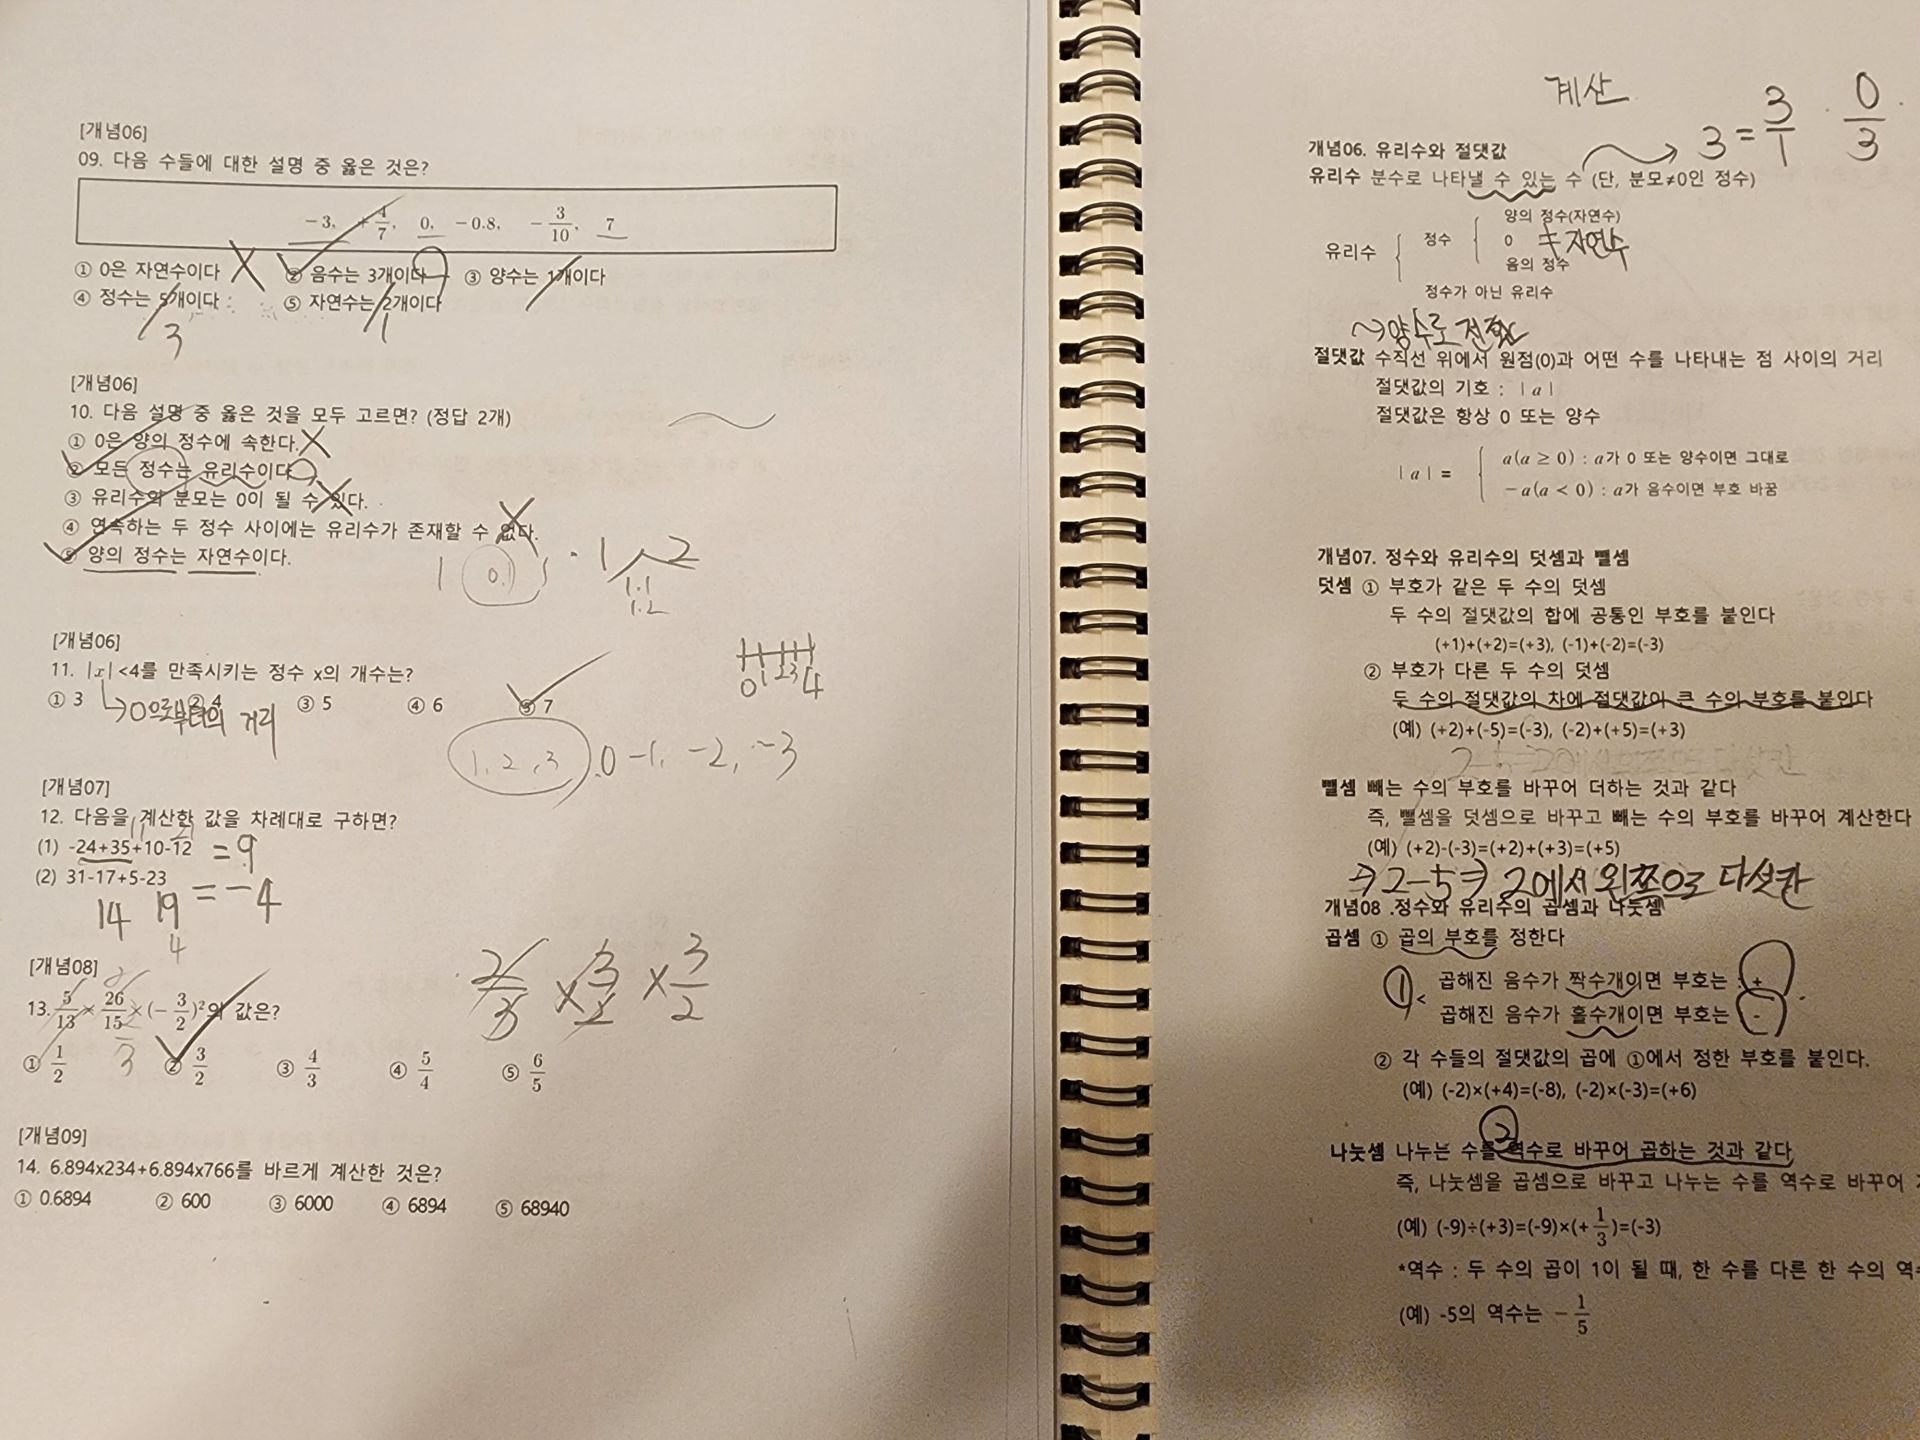 [개념06]
09. 다음 수들에 대한 설명 중 옳은 것은?
-3, +4/7, 0, -0.8, -3/10, 7
① 0은 자연수이다 X ② 음수는 3개이다 ③ 양수는 1개이다
④ 정수는 5개이다 ⑤ 자연수는 2개이다
3 1
[개념06]
10. 다음 설명 중 옳은 것을 모두 고르면? (정답 2개)
① 0은 양의 정수에 속한다. X
② 모든 정수는 유리수이다
③ 유리수의 분모는 0이 될 수 있다.
④ 연속하는 두 정수 사이에는 유리수가 존재할 수 없다.
⑤ 양의 정수는 자연수이다.
1 2
1.1
1.2
[개념06]
11. |x|<4를 만족시키는 정수 x의 개수는?
① 3 ② 4 ③ 5 ④ 6 ⑤ 7
→0으로부터의 거리
0 1 2 3 4
1, 2, 3, 0 -1, -2, -3
[개념07]
12. 다음을 계산한 값을 차례대로 구하면?
11
(1) -24+35+10-12 = 9
(2) 31-17+5-23
14 19 = -4
4
[개념08]
13. 5/13 × 26/15 × (-3/2)²의 값은?
2/3 × 3/2 × 3/2
① 1/2 ② 3/2 ③ 4/3 ④ 5/4 ⑤ 6/5
[개념09]
14. 6.894x234+6.894x766를 바르게 계산한 것은?
① 0.6894 ② 600 ③ 6000 ④ 6894 ⑤ 68940
계산
3 = 3/1 . 0/3
개념06. 유리수와 절댓값
유리수 분수로 나타낼 수 있는 수 (단, 분모≠0인 정수)
양의 정수(자연수)
유리수 정수 0 ≠자연수
음의 정수
정수가 아닌 유리수
~>양수로 전환
절댓값 수직선 위에서 원점(0)과 어떤 수를 나타내는 점 사이의 거리
절댓값의 기호 : |a|
절댓값은 항상 0 또는 양수
|a| = a(a ≥ 0) : a가 0 또는 양수이면 그대로
-a(a < 0) : a가 음수이면 부호 바꿈
개념07. 정수와 유리수의 덧셈과 뺄셈
덧셈 ① 부호가 같은 두 수의 덧셈
두 수의 절댓값의 합에 공통인 부호를 붙인다
(+1)+(+2)=(+3), (-1)+(-2)=(-3)
② 부호가 다른 두 수의 덧셈
두 수의 절댓값의 차에 절댓값이 큰 수의 부호를 붙인다
(예) (+2)+(-5)=(-3), (-2)+(+5)=(+3)
뺄셈 빼는 수의 부호를 바꾸어 더하는 것과 같다
즉, 뺄셈을 덧셈으로 바꾸고 빼는 수의 부호를 바꾸어 계산한다
(예) (+2)-(-3)=(+2)+(+3)=(+5)
⇒2-5⇒ 2에서 왼쪽으로 다섯칸
개념08 .정수와 유리수의 곱셈과 나눗셈
곱셈 ① 곱의 부호를 정한다
① < 곱해진 음수가 짝수개이면 부호는 : +
곱해진 음수가 홀수개이면 부호는 : -
② 각 수들의 절댓값의 곱에 ①에서 정한 부호를 붙인다.
(예) (-2)×(+4)=(-8), (-2)×(-3)=(+6)
②
나눗셈 나누는 수를 역수로 바꾸어 곱하는 것과 같다
즉, 나눗셈을 곱셈으로 바꾸고 나누는 수를 역수로 바꾸어
(예) (-9)÷(+3)=(-9)×(+1/3)=(-3)
*역수 : 두 수의 곱이 1이 될 때, 한 수를 다른 한 수의
(예) -5의 역수는 -1/5